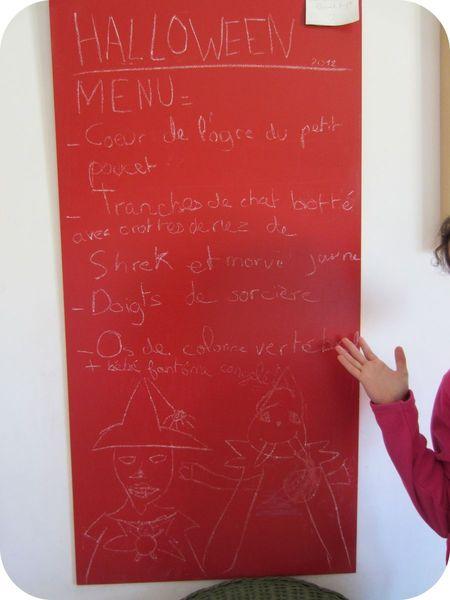 HALLOWEEN
2012
MENU=
- Coeur de l'ogre du petit
poucet
- Tranches de chat botté
avec crottes de nez de
Shrek et morve jaune
- Doigts de sorcière
- Os de colonne vertébral
+ bébé fantôme